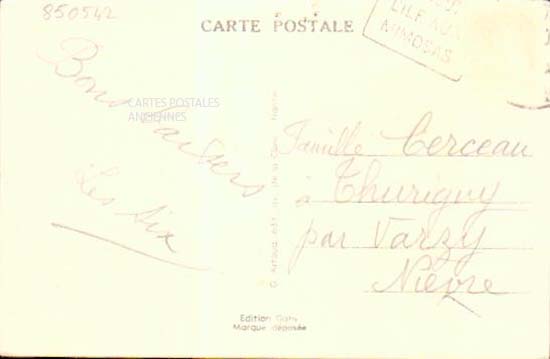 850542
CARTE POSTALE
L'ILE AUX
MIMOSAS
Bons Baisers
Les Six
CARTES POSTALES
ANCIENNES
Famille Cerceau
à Thurigny
par Varzy
Nièvre
Edition Gaby
Marque déposée